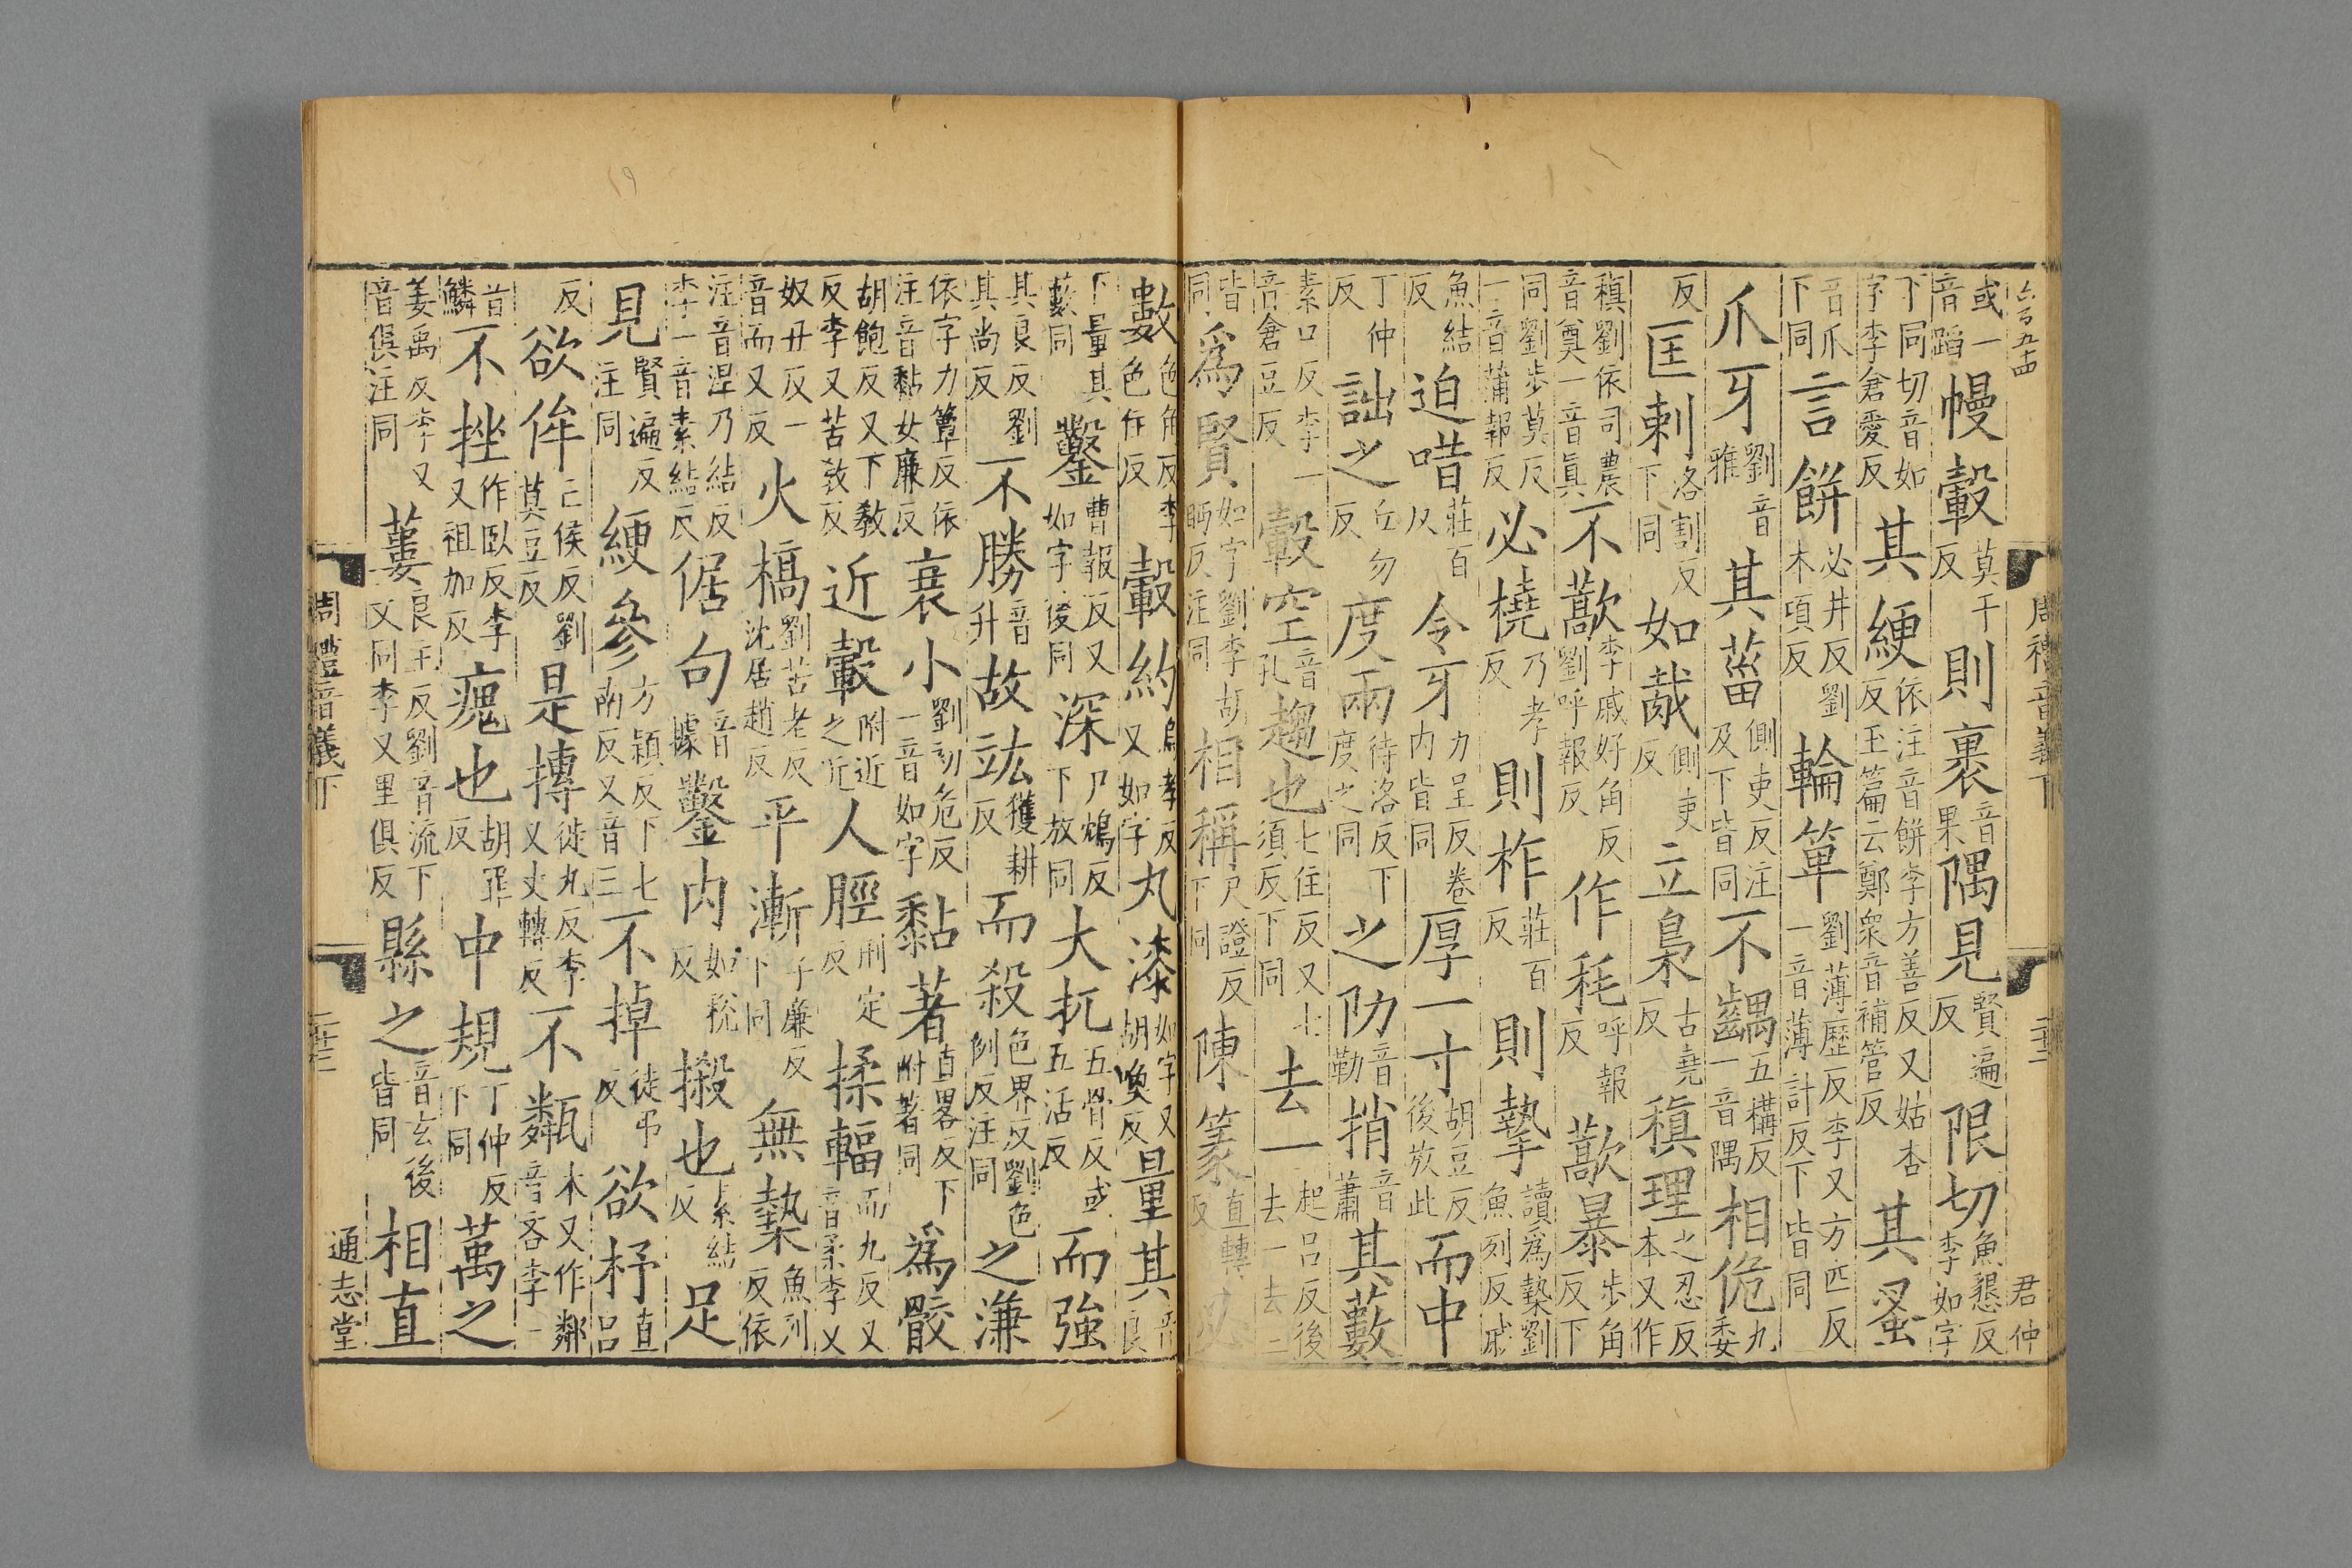 六百五十四 周禮音義下 二十二 君仲
或一音蹈幔轂莫干反則裹音果隅見賢遍反限切魚懇反李如字
下同切音如字李倉愛反其綆依注音餅李方善反又姑杏反玉篇云鄭衆音補管反其蚤
音爪下同言餅必井反劉木項反輪箄劉薄歷反李又方匹反一音薄計反下皆同
爪牙劉音雅其菑側吏反注及下皆同不齵五構反一音隅相佹九委
反匡刺洛割反下同如胾側吏反立梟古堯反稹理之忍反本又作
稹劉依司農音奠一音眞不藃李戚好角反劉呼報反作秏呼報反藃暴步角反下
同劉步莫反一音蒲報反必橈乃孝反則柞莊百反則摯讀爲槷劉魚列反戚
魚結反迫唶莊百反令牙力呈反卷内皆同厚一寸胡豆反後放此而中
丁仲反詘之丘勿反度兩待洛反下度之同之阞音勒捎音蕭其藪
素口反李一音倉豆反轂空音孔趨也七住反又七須反下同去一起呂反後去一去二
皆同爲賢如字劉李胡眄反注同相稱尺證反下同陳篆直轉反
數色角反李色住反轂約烏孝反又如字丸漆如字又胡喚反量其音良
下量其藪同鑿曹報反又如字後同深尸鴆反下放同大扤五骨反或五活反而強
其良反劉其尚反不勝音升故竑獲耕反而殺色界反劉色例反注同之溓
依字力簟反依注音黏女廉反衰小劉初危反一音如字黏著直畧反下附著同爲骹
胡飽反又下教反李又苦教反近轂附近之近人脛刑定反揉輻而九反又音柔李又
奴丑反一音而又反火槁劉苦老反沈居趙反平漸子廉反下同無槷魚列反依
注音涅乃結反李一音素結反倨句音據鑿内如銳反摋也素結反足
見賢遍反注同綆參方穎反下七南反又音三不掉徒弔反欲杼直呂
反欲侔亡侯反劉莫豆反是摶徒丸反李又丈轉反不甐本又作鄰音吝李一
音鱗不挫作臥反李又祖加反瘣也胡罪反中規丁仲反下同萬之
姜禹反李又音俱注同蔞良主反劉音流下又同李又里俱反縣之音玄後皆同相直
周禮音義下 二十二 通志堂